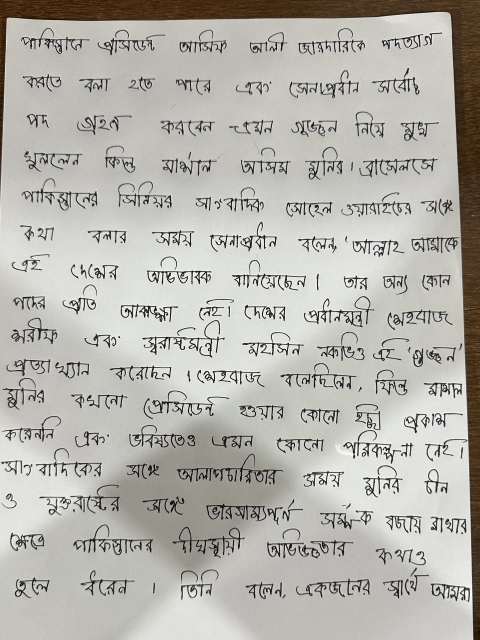 পাকিস্তানে প্রেসিডেন্ট আসিফ আলী জারদারিকে পদত্যাগ
করতে বলা হতে পারে এবং সেনাপ্রধান সর্বোচ্চ
পদ গ্রহণ করবেন -এমন গুঞ্জন নিয়ে মুখ
খুললেন ফিল্ড মার্শাল আসিম মুনির। ব্রাসেলসে
পাকিস্তানের সিনিয়র সাংবাদিক সোহেল ওয়ারাইচের সঙ্গে
কথা বলার সময় সেনাপ্রধান বলেন, 'আল্লাহ আমাকে
এই দেশের অভিভাবক বানিয়েছেন। তার অন্য কোন
পদের প্রতি আকাঙ্ক্ষা নেই। দেশের প্রধানমন্ত্রী শেহবাজ
শরীফ এবং স্বরাষ্ট্রমন্ত্রী মহসিন নকভিও এই 'গুঞ্জন'
প্রত্যাখ্যান করেছেন। শেহবাজ বলেছিলেন, ফিল্ড মার্শাল
মুনির কখনো প্রেসিডেন্ট হওয়ার কোনো ইচ্ছা প্রকাশ
করেননি এবং ভবিষ্যতেও এমন কোনো পরিকল্পনা নেই।
সাংবাদিকের সঙ্গে আলাপচারিতার সময় মুনির চীন
ও যুক্তরাষ্ট্রের সঙ্গে ভারসাম্যপূর্ণ সম্পর্ক বজায় রাখার
ক্ষেত্রে পাকিস্তানের দীর্ঘস্থায়ী অভিজ্ঞতার কথাও
তুলে ধরেন। তিনি বলেন, একজনের স্বার্থে আমরা